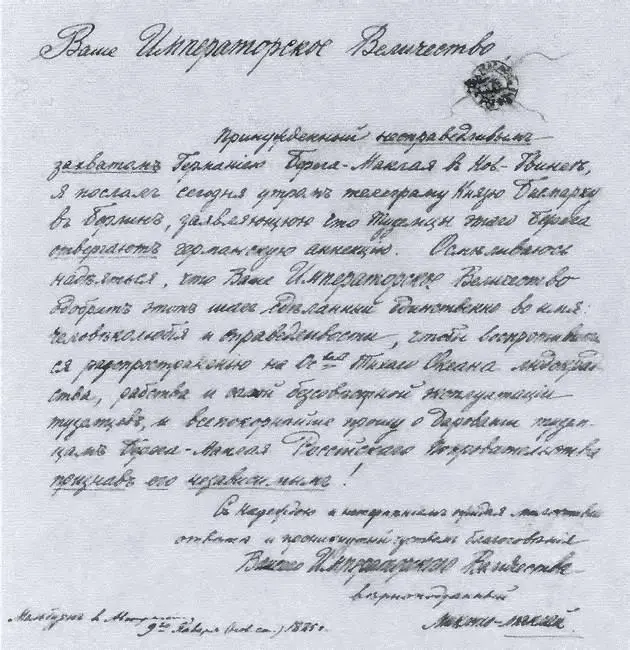 Ваше Императорское Величество,
Принужденный несправедливымъ
захватомъ Германіею Берега-Маклая въ Нов-Гвинеѣ,
я послалъ сегодня утромъ телеграму Князю Бисмарку
въ Берлинъ, заявляющую что туземцы этого Берега
отвергаютъ германскую аннекцію. Осмѣливаюсь
надѣяться, что Ваше Императорское Величество
одобритъ этотъ шагъ сдѣланный единственно во имя
человѣколюбія и справедливости, чтобы воспротивить-
ся распространенію на Ос-ва Тихаго Океана людокрад-
ства, рабства и самой безсовѣстной эксплуатаціи
туземцевъ, и всепокорнѣйше прошу о дарованіи тузем-
цамъ Берега-Маклая Россійскаго Покровительства
признавъ его независимымъ!
Съ надеждою и нетерпѣніемъ ожидая
отвѣта и чувствомъ благоговѣнія
Вашего Императорскаго Величества
вѣрноподданный
Мельбурнъ въ
9го Января (нов. ст.) 1885 г. Миклухо-Маклай.